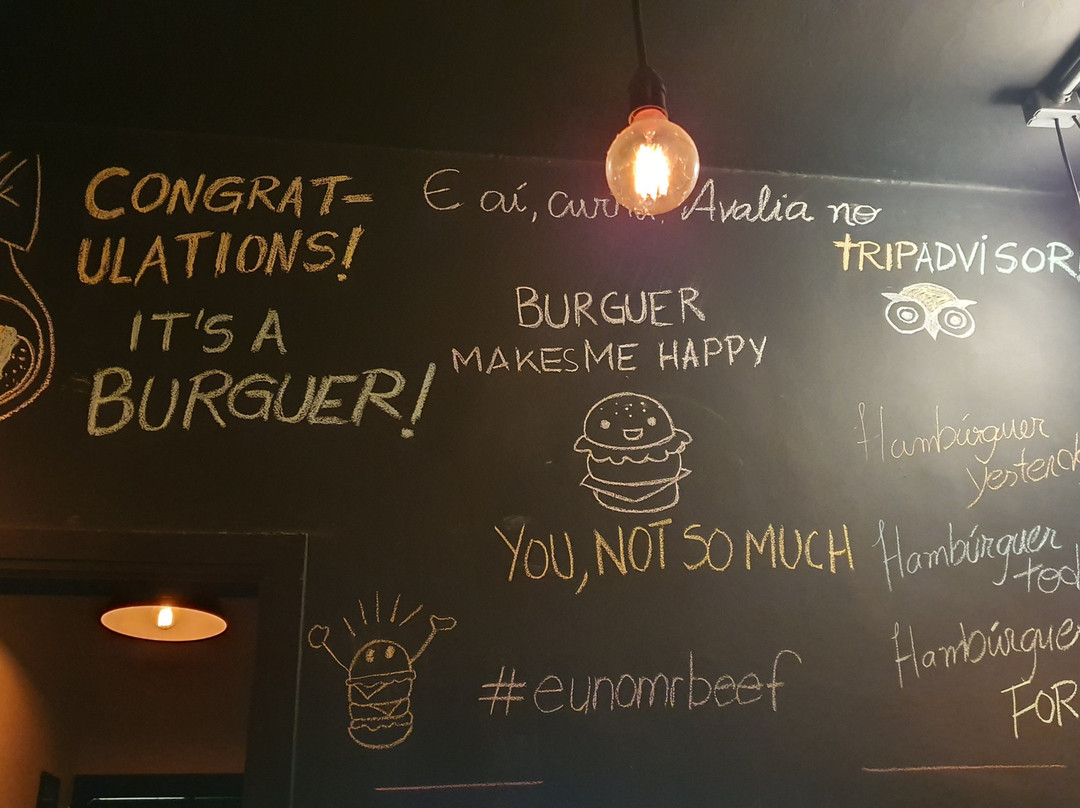 CONGRAT-
ULATIONS!
IT'S A
BURGUER!
E aí, Avalia no
TRIPADVISOR!
BURGUER
MAKES ME HAPPY
YOU, NOT SO MUCH
#eunomrbeef
Hambúrguer
Hambúrguer
FOR